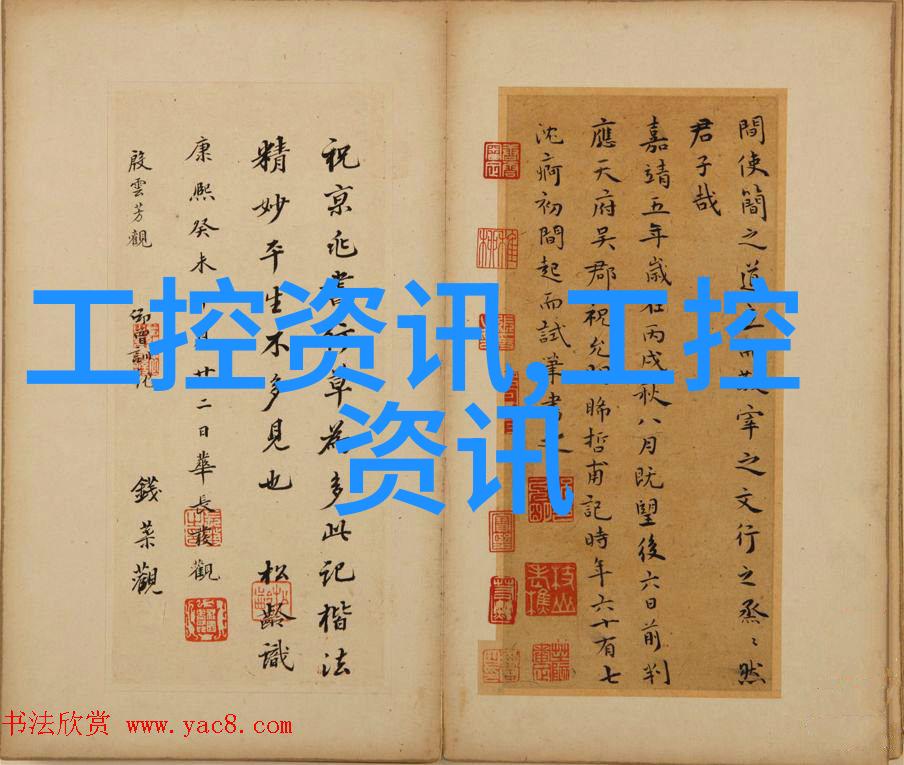 間使簡之道之
宰之文行之烝烝然
君子哉
嘉靖五年歲在丙戌秋八月既望後六日前判
應天府吳郡祝允明睎哲甫記時年六十有七
沈痾初間起而試筆書
祝京兆書行草為多此記楷法
精妙平生不多見也 松齡識
康熙癸未 月廿二日華長發觀
殷雲芳觀
錢菜觀
工控资讯,工控
资讯
书法欣赏 www.yac8.com